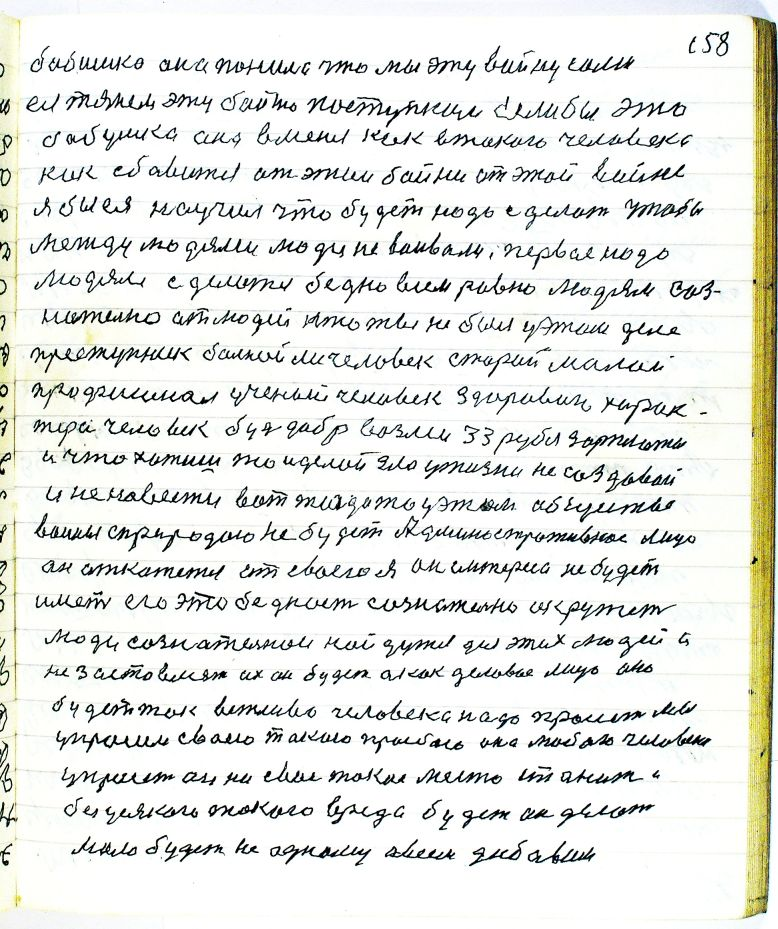 158
бабишка она понила что мы эту вайну сами
ей тянем эту байню поступками были бы это
бабушка она в меня как в такого человека
как сбавится от этии байни от этай вайне
я бы ея научил что будет надо сделат чтобы
между людями люди не ваивали, первае надо
людям сделатся бедно всем равно людям саз-
нателно от людей кто ты не был у этам деле
преступник балной ли человек старай малай
профисинал ученый человек здороваго харак-
тера человек будз добр возми 33 рубл зарплаты
и что хатиш то и делой зло у жизни не создовай
и ненавести вот тогдато у этом обществе
вайны с природою не будет Административнае лицо
ан аткажется от своего я ан интереса не будет
имет его это беднаст сознателно акружет
люди сознателнои найдутся для этих людей и
не заставлят их ан будет а как деловое лицо оно
будет так вежливо человека надо просит мы
упросим своею такою прозбою она любою человека
упросит ан на свое такое место станит и
без усякого такого вреда будет ан делат
мало будет не аднаму а всем дабавим